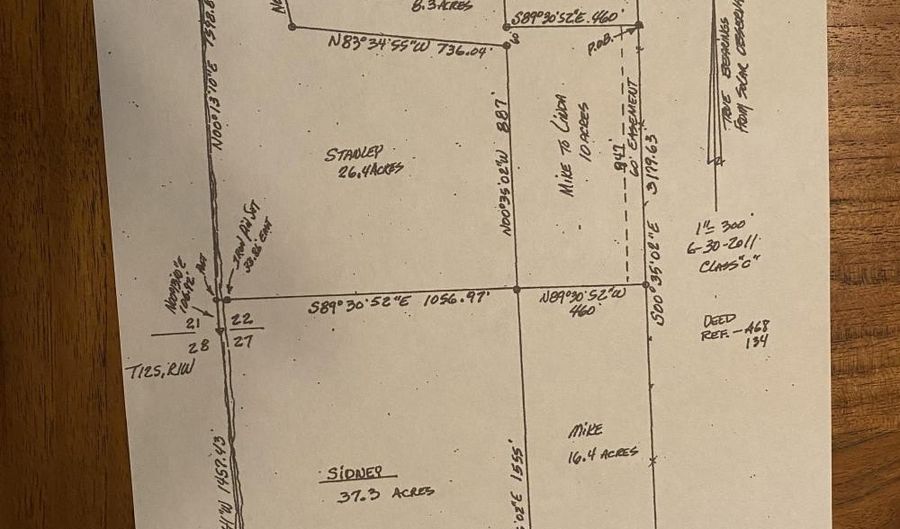 8.3 ACRES
S89°30'52"E 460'
N83°34'55"W 736.04'
60'
P.O.B.
N00°13'10"E 1592.8
TRUE BEARINGS
FROM SOLAR OBSERV
887'
N00°35'02"W
MIKE TO LINDA
10 ACRES
947'
60' EASEMENT
3179.63'
S00°35'02"E
STANLEY
26.4 ACRES
1"= 300'
6-30-2011
CLASS "C"
IRON PIN SET
33.86' EAST
106.92'
S89°30'52"E 1056.97'
N89°30'52"W
460
21 22
28 27
T12S, R1W
DEED
REF. - A68
134
MIKE
16.4 ACRES
SIDNEY
37.3 ACRES
"W 1457.43'
02"E 1555'